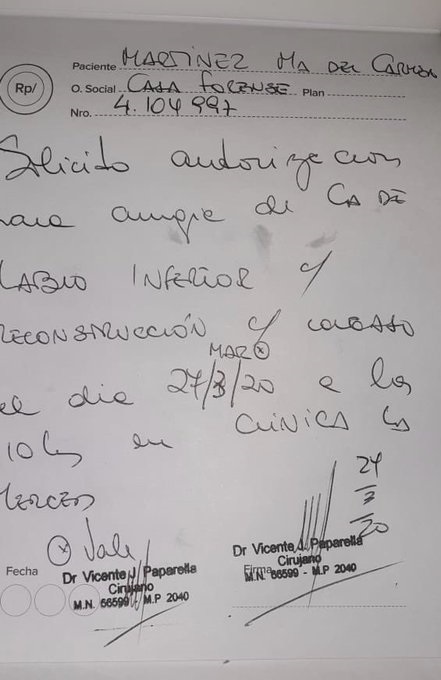 Rp/
Paciente MARTINEZ MA DEL CARMEN
O. Social CASA FORENSE Plan
Nro. 4.104.997
Solicito autorizacion
para cirugia de CA DE
LABIO INFERIOR c/
RECONSTRUCCIÓN c/ COLGAJO
MARZO
el dia 27/3/20 a las
10 hs en CLINICA LA
MERCED
24
3
20
Vale
Fecha
Dr Vicente J. Paparella
Cirujano
M.N. 66599 - M.P 2040
Firma
Dr Vicente J. Paparella
Cirujano
M.N. 66599 - M.P 2040